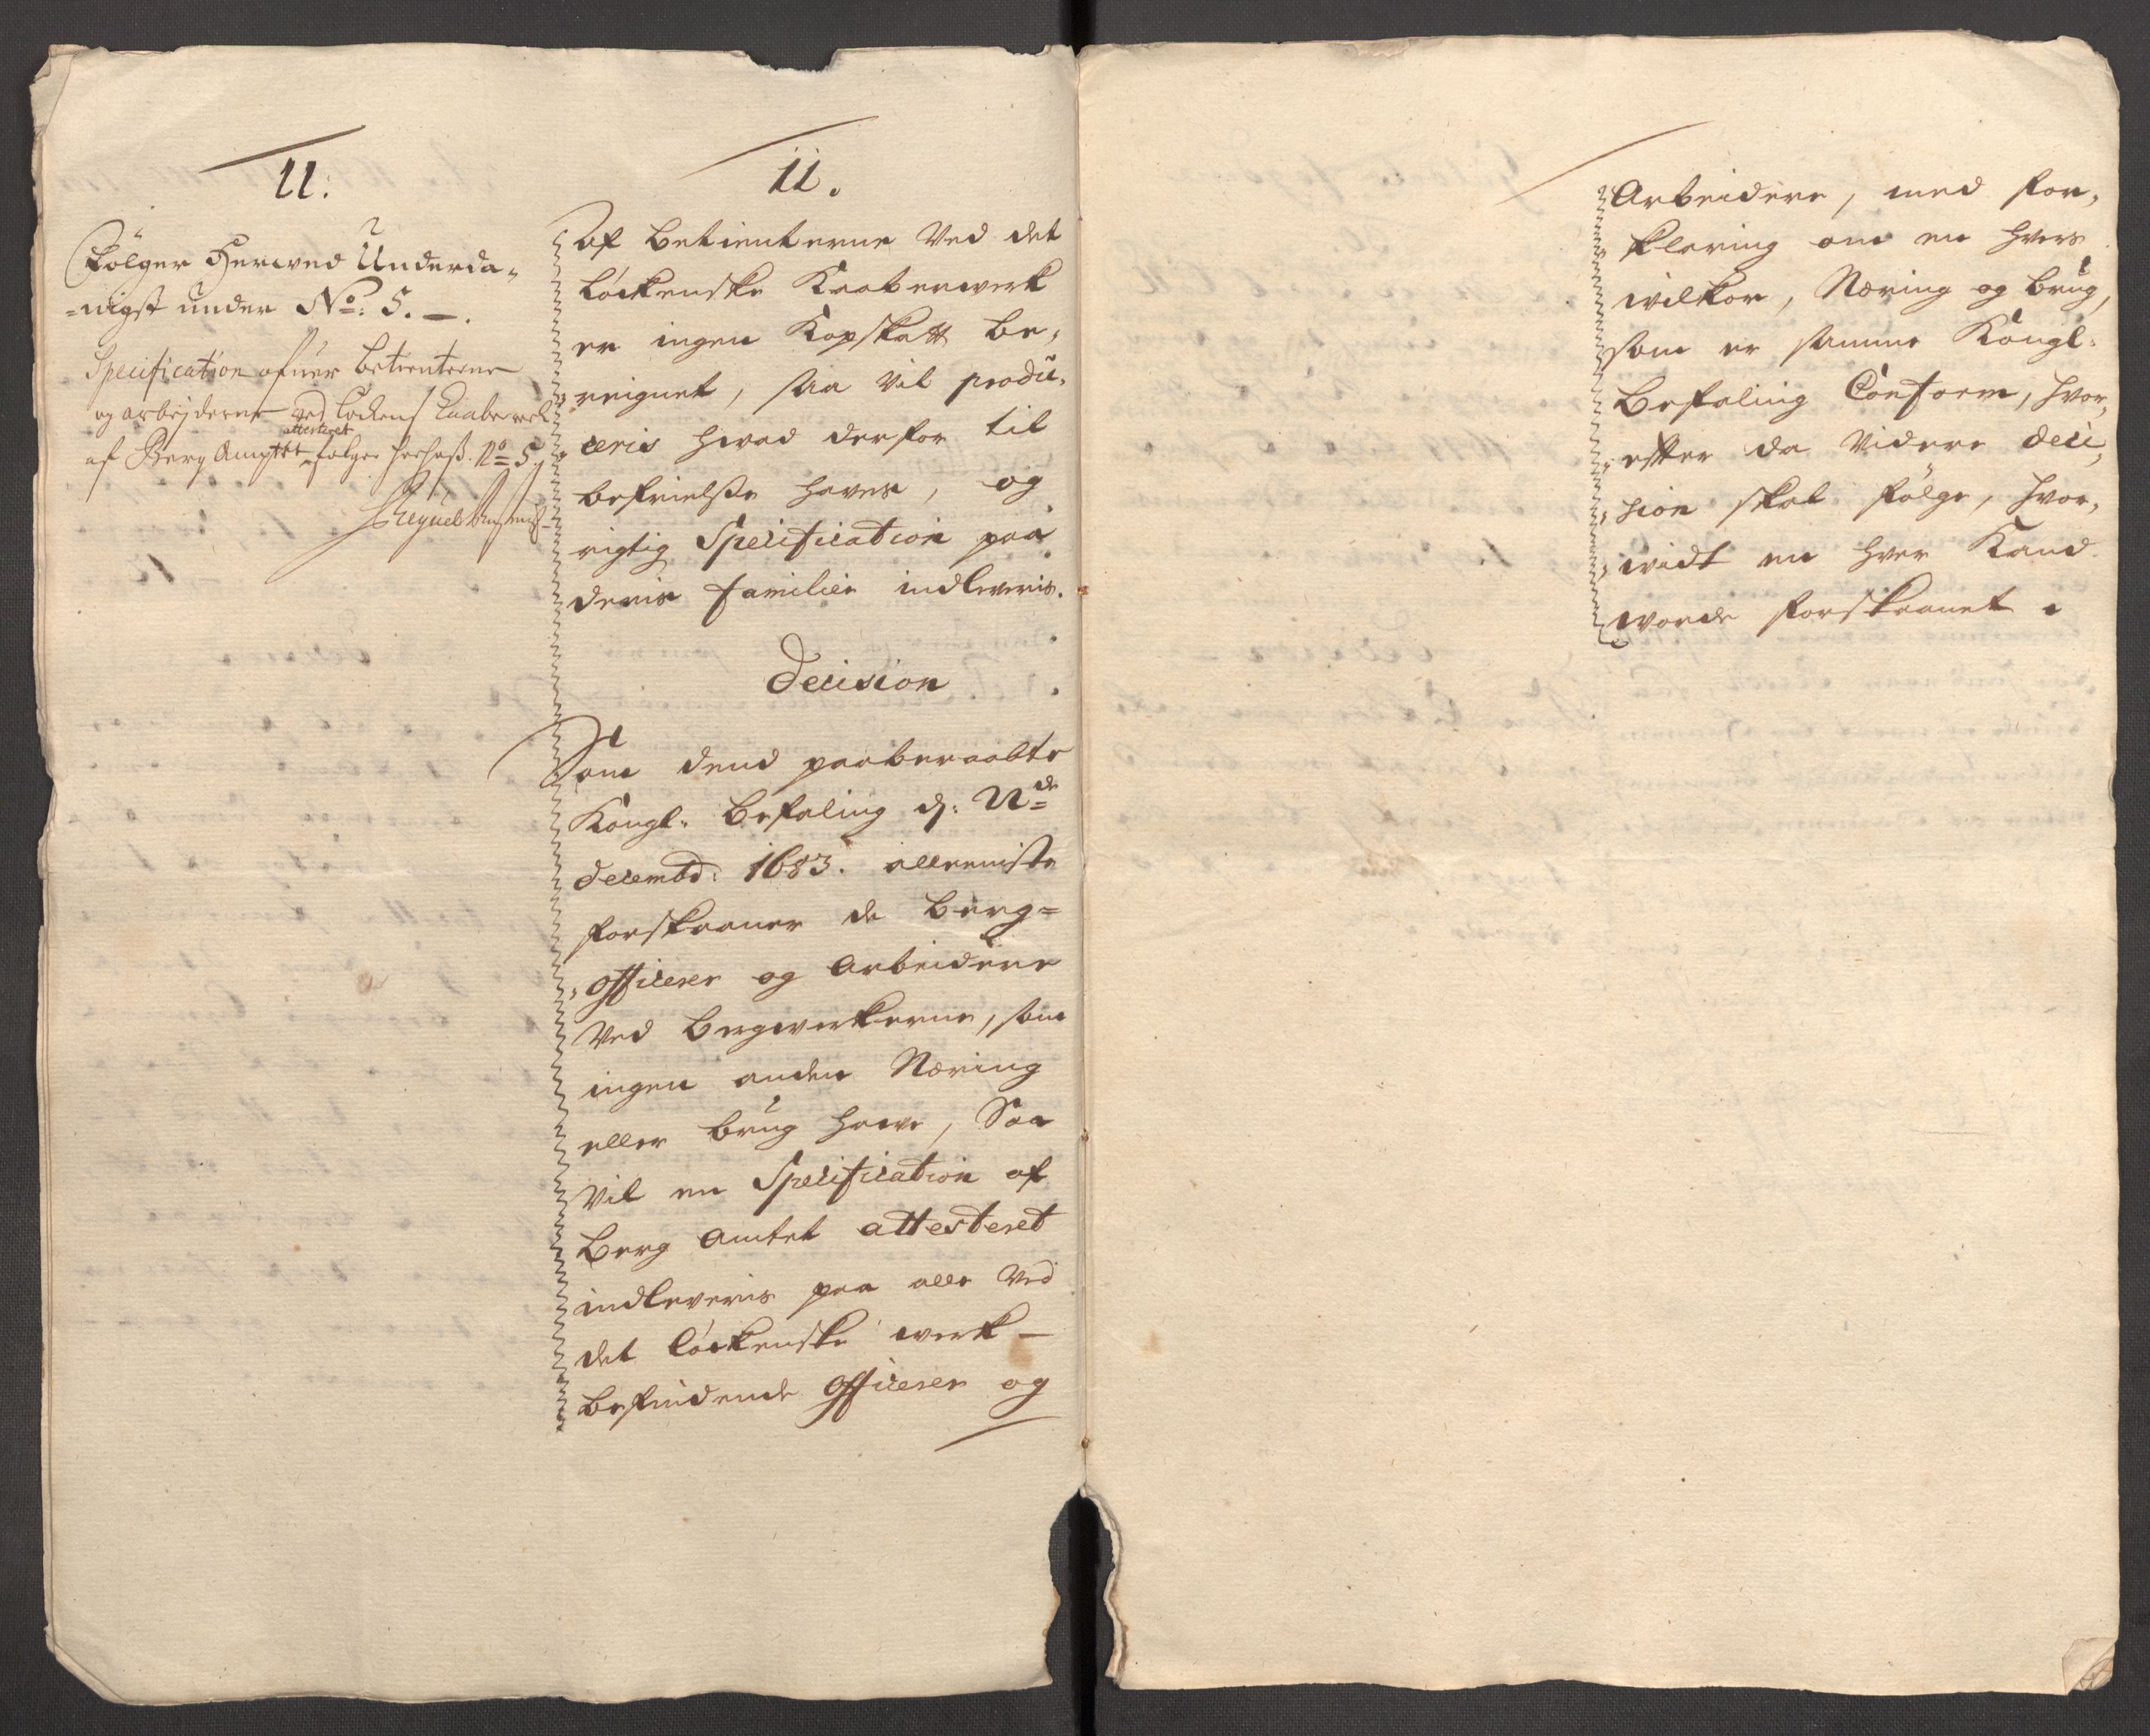 11.
Følger Herved Underda-
-nigst under No: 5. —.
Specification ofuer betienterne
og arbejderne ved Løckens Kaaberverk
af Berg Amptet attesteret følger herhoß. No 5.
11.
Af betienterne Ved det
Løckenske Kaaberwerk
er ingen Kopskatt be-
reignet, saa vil produ-
ceris hvad derfor til
befrielße haves, og
rigtig Specification paa
deris familier indleveris.
Decision
Som dend paaberaabte
Kongl. befaling d: 22de
Decembr: 1683. alleeniste
forskaaner de berg-
officerer og Arbeidere
Ved bergwerkerne, som
ingen anden Næring
eller brug hawe, Saa
Vil en Specification af
berg Amtet attesteret
indleveris paa alle Ved
det Løckenske werk —
befindende officerer og
Arbeidere, med for-
klaring om en hvers
wilkor, Næring og brug,
som er samme Kongl.
befaling Conform, hvor-
effter da Videre deci-
sion skal følge, hvor-
widt en hver Kand
worde forskaanet.